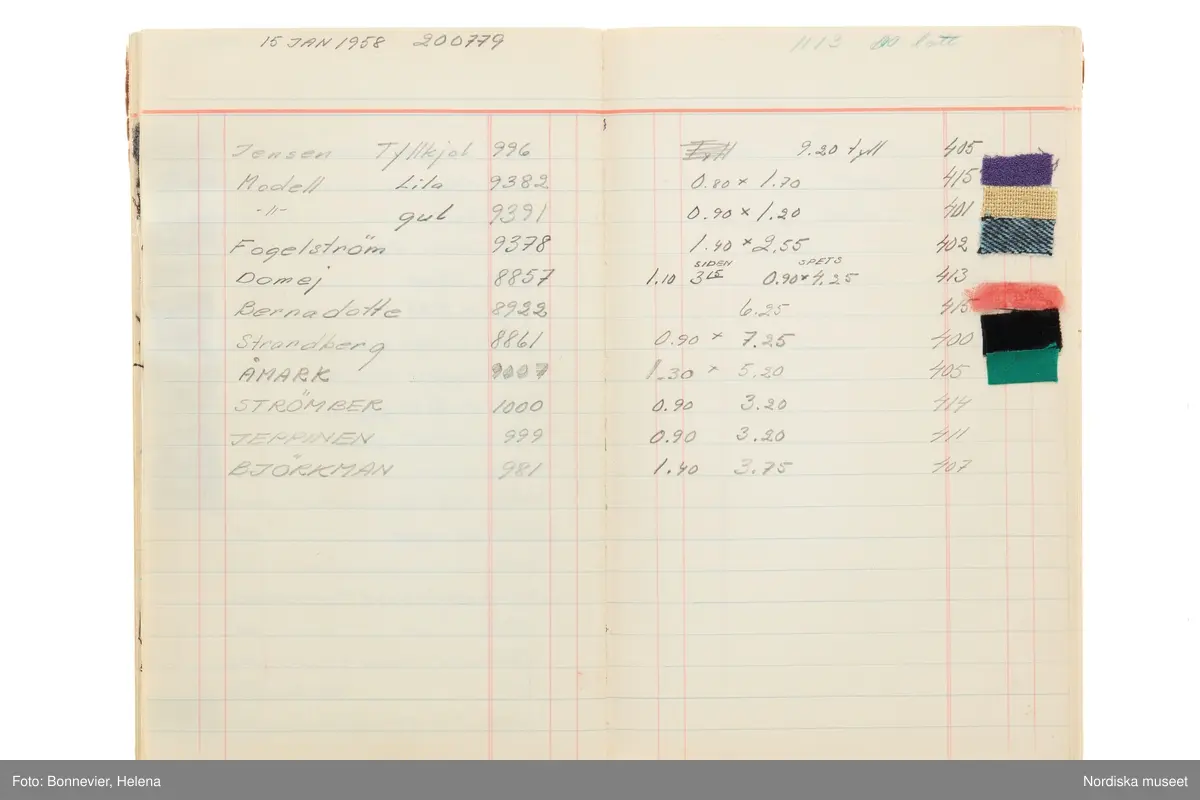 15 JAN 1958 200779 1113
Jensen Tyllkjol 996 9.20 tyll 405
Modell Lila 9382 0.80 × 1.70 415
-"- gul 9391 0.90 × 1.20 401
Fogelström 9378 1.40 × 2.55 402
SIDEN SPETS
Domej 8857 1.10 3 15 0.90 × 4.25 413
Bernadotte 8922 6.25 415
Strandberg 8861 0.90 × 7.25 400
ÅMARK 9007 1.30 × 5.20 405
STRÖMBER 1000 0.90 3.20 414
JEPPINEN 999 0.90 3.20 411
BJÖRKMAN 981 1.40 3.75 407
Foto: Bonnevier, Helena Nordiska museet